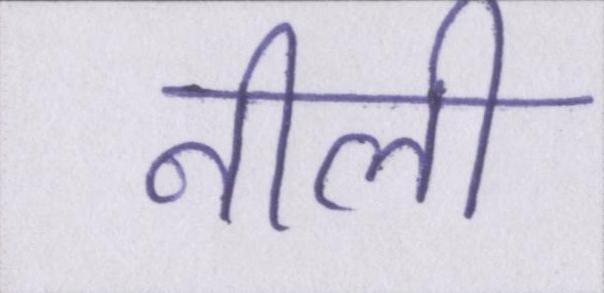 नीली